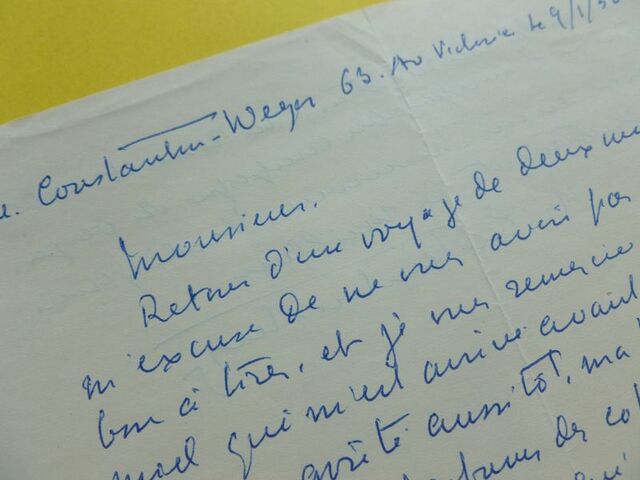 Constantin-Weyer 63. Av Victoria le 9/1/50
Monsieur.
Retour d'un voyage de deux
m'excuse de ne vous avoir pas
bon à tirer, et je vous remercie
qui m'est arrivé avant
aussitôt, ma